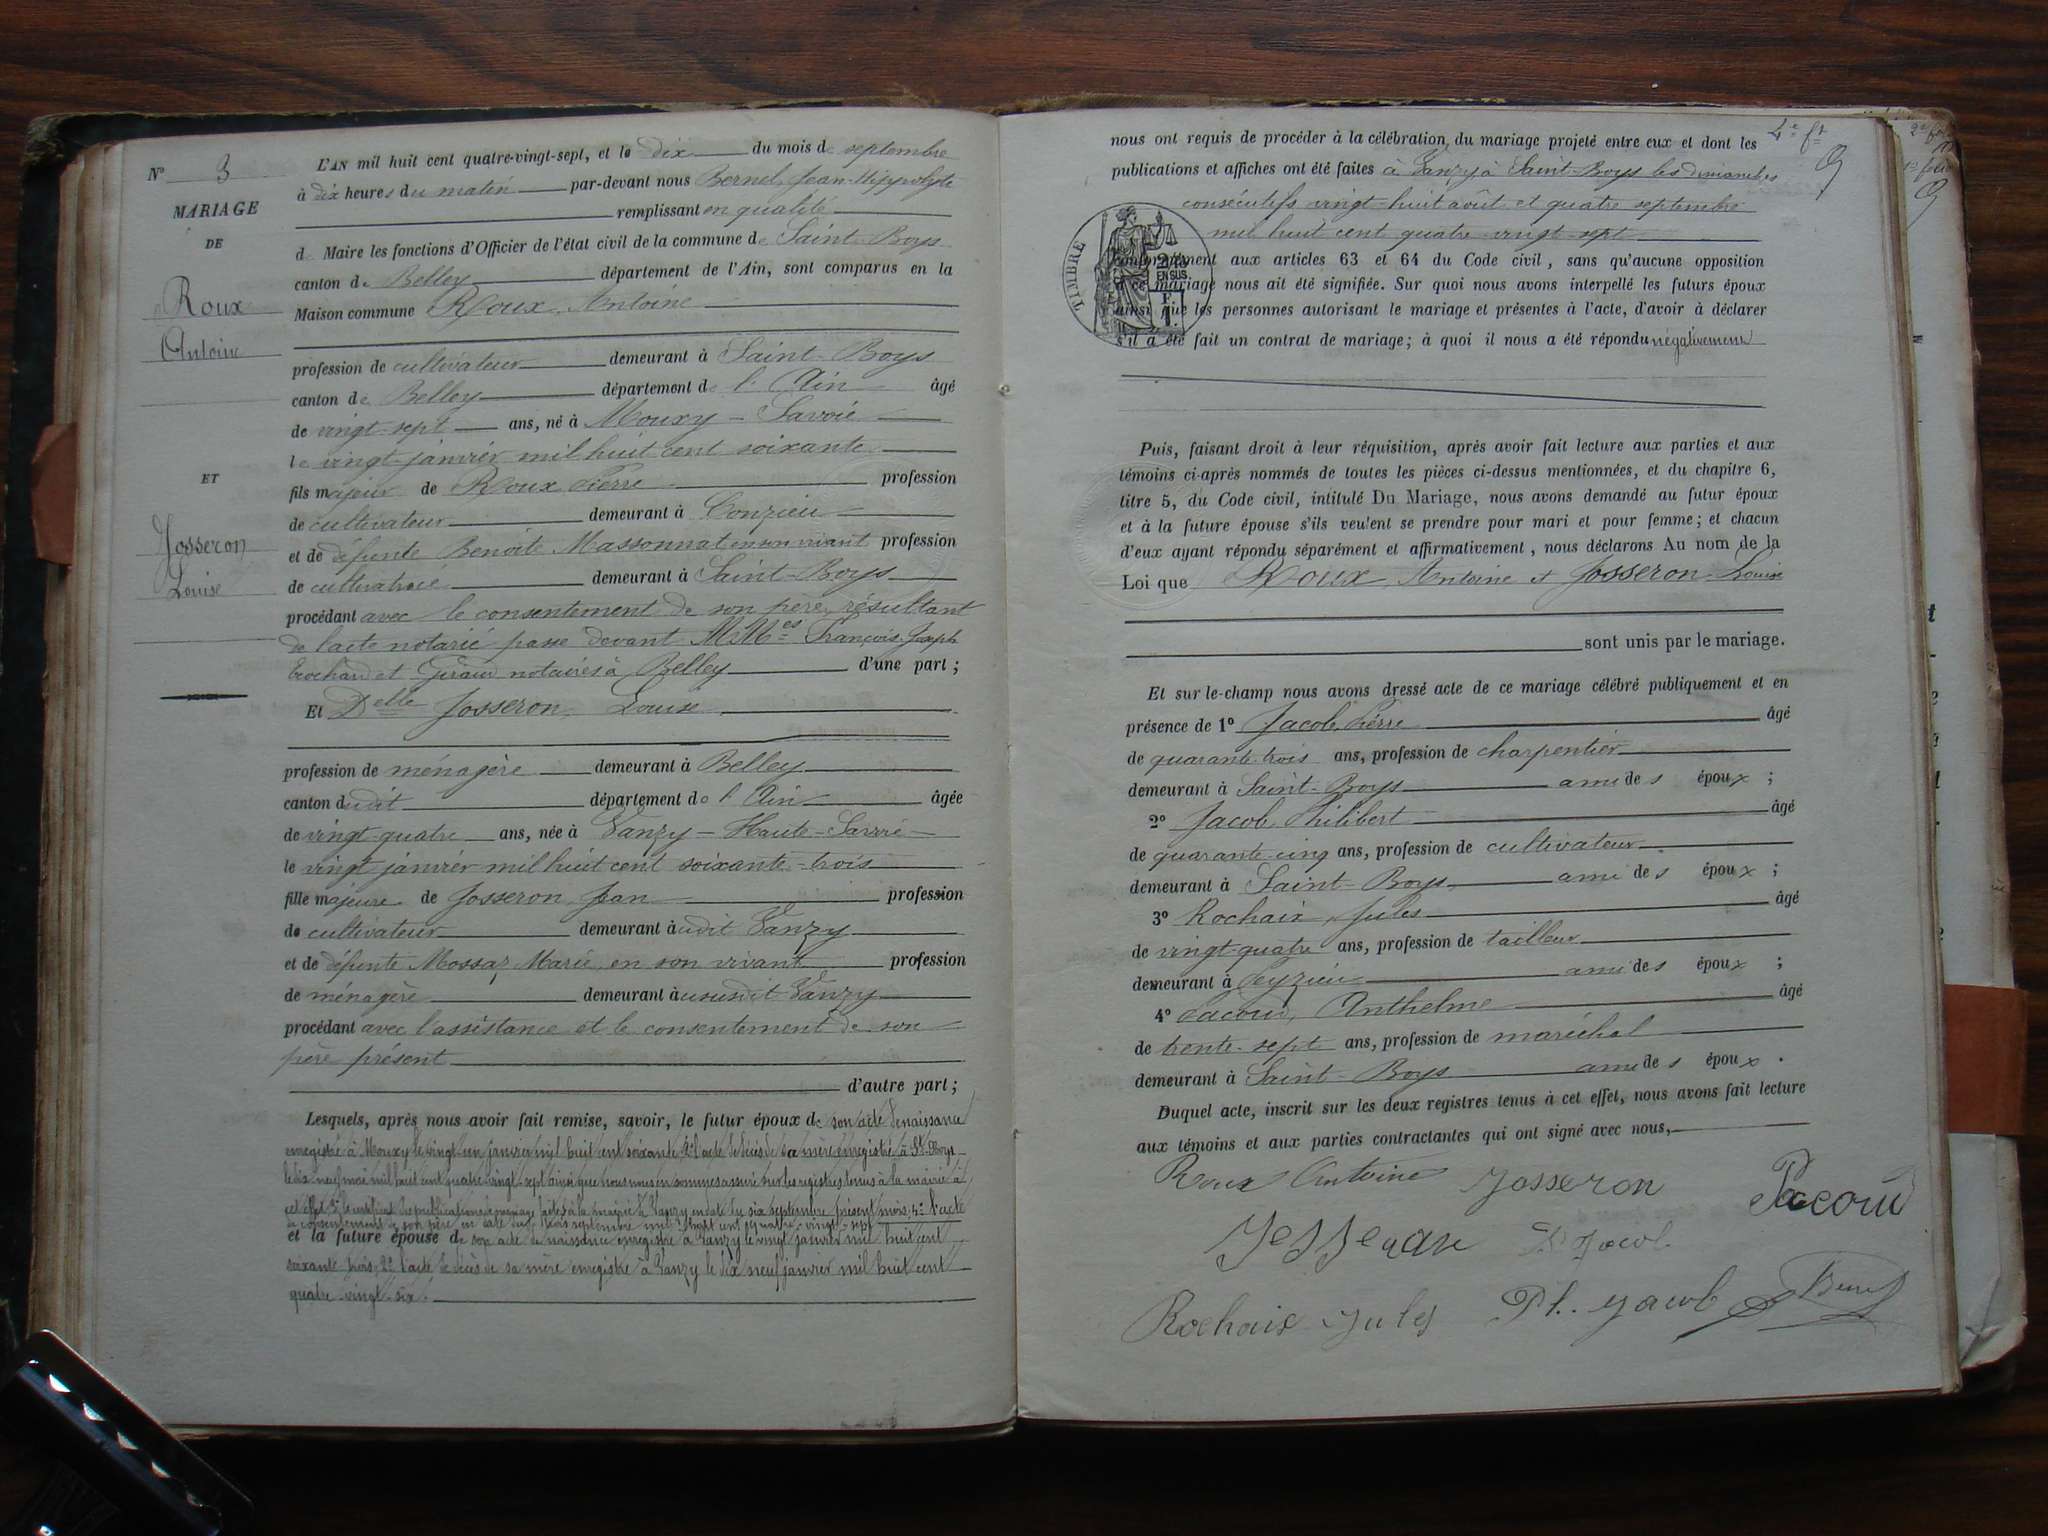 N° 3
MARIAGE
DE
Roux
Antoine
ET
Josseron
Louise
L'AN mil huit cent quatre-vingt-sept, et le dix du mois de septembre
à dix heures du matin par-devant nous Bernel, Jean-Hippolyte
remplissant en qualité
de Maire les fonctions d'Officier de l'état civil de la commune de Saint-Boys
canton de Belley département de l'Ain, sont comparus en la
Maison commune Roux, Antoine
profession de cultivateur demeurant à Saint-Boys
canton de Belley département de l'Ain âgé
de vingt-sept ans, né à Mouxy - Savoie
le vingt janvier mil huit cent soixante
fils majeur de Roux Pierre profession
de cultivateur demeurant à Conzieu
et de défunte Benoite Massonnat en son vivant profession
de cultivatrice demeurant à Saint-Boys
procédant avec le consentement de son père, résultant
de l'acte notarié passé devant MMes François-Joseph
Trochard et notaires à Belley d'une part ;
Et Delle Josseron, Louise
profession de ménagère demeurant à Belley
canton dudit département de l'Ain âgée
de vingt-quatre ans, née à Vanzy - Haute-Savoie
le vingt janvier mil huit cent soixante-trois
fille majeure de Josseron Jean profession
de cultivateur demeurant àudit Vanzy
et de défunte Mossaz Marie, en son vivant profession
de ménagère demeurant àususdit Vanzy
procédant avec l'assistance et le consentement de son
père présent
d'autre part ;
Lesquels, après nous avoir fait remise, savoir, le futur époux de son acte de naissance
enregistré à Mouxy le vingt-un janvier mil huit cent soixante, 2° l'acte de décès de sa mère enregistré à St-Boys
le dix-neuf mai mil huit cent quatre-vingt-sept ainsi que nous nous en sommes assuré sur les registres tenus à la mairie à
cet effet 3° le certificat de publications de mariage faites à la mairie de Vanzy en date du six septembre présent mois, 4° l'acte
de consentement de son père en date du trois septembre mil huit cent quatre-vingt-sept
et la future épouse de son acte de naissance enregistré à Vanzy le vingt janvier mil huit cent
soixante-trois, 2° l'acte de décès de sa mère enregistré à Vanzy le dix neuf janvier mil huit cent
quatre-vingt-six.
4e ft
2e
nous ont requis de procéder à la célébration du mariage projeté entre eux et dont les
publications et affiches ont été faites à Vanzy à Saint-Boys les dimanches
consécutifs vingt-huit août et quatre septembre
mil huit cent quatre-vingt sept
conformément aux articles 63 et 64 du Code civil, sans qu'aucune opposition
à ce mariage nous ait été signifiée. Sur quoi nous avons interpellé les futurs époux
ainsi que les personnes autorisant le mariage et présentes à l'acte, d'avoir à déclarer
s'il a été fait un contrat de mariage; à quoi il nous a été répondu négativement
TIMBRE
EN SUS
Puis, faisant droit à leur réquisition, après avoir fait lecture aux parties et aux
témoins ci-après nommés de toutes les pièces ci-dessus mentionnées, et du chapitre 6,
titre 5, du Code civil, intitulé Du Mariage, nous avons demandé au futur époux
et à la future épouse s'ils veulent se prendre pour mari et pour femme; et chacun
d'eux ayant répondu séparément et affirmativement, nous déclarons Au nom de la
Loi que Roux, Antoine et Josseron Louise
sont unis par le mariage.
Et sur-le-champ nous avons dressé acte de ce mariage célébré publiquement et en
présence de 1° Jacob, Pierre âgé
de quarante-trois ans, profession de charpentier
demeurant à Saint-Boys ami des époux ;
2° Jacob, Philibert âgé
de quarante-cinq ans, profession de cultivateur
demeurant à Saint-Boys ami des époux ;
3° Rochaix, Jules âgé
de vingt-quatre ans, profession de tailleur
demeurant à Peyzieu ami des époux ;
4° Pacoud, Anthelme âgé
de trente-sept ans, profession de maréchal
demeurant à Saint-Boys ami des époux .
Duquel acte, inscrit sur les deux registres tenus à cet effet, nous avons fait lecture
aux témoins et aux parties contractantes qui ont signé avec nous,
Roux Antoine Josseron Pacoud
Josseron P Jacob
Rochaix Jules Ph. Jacob Bernel